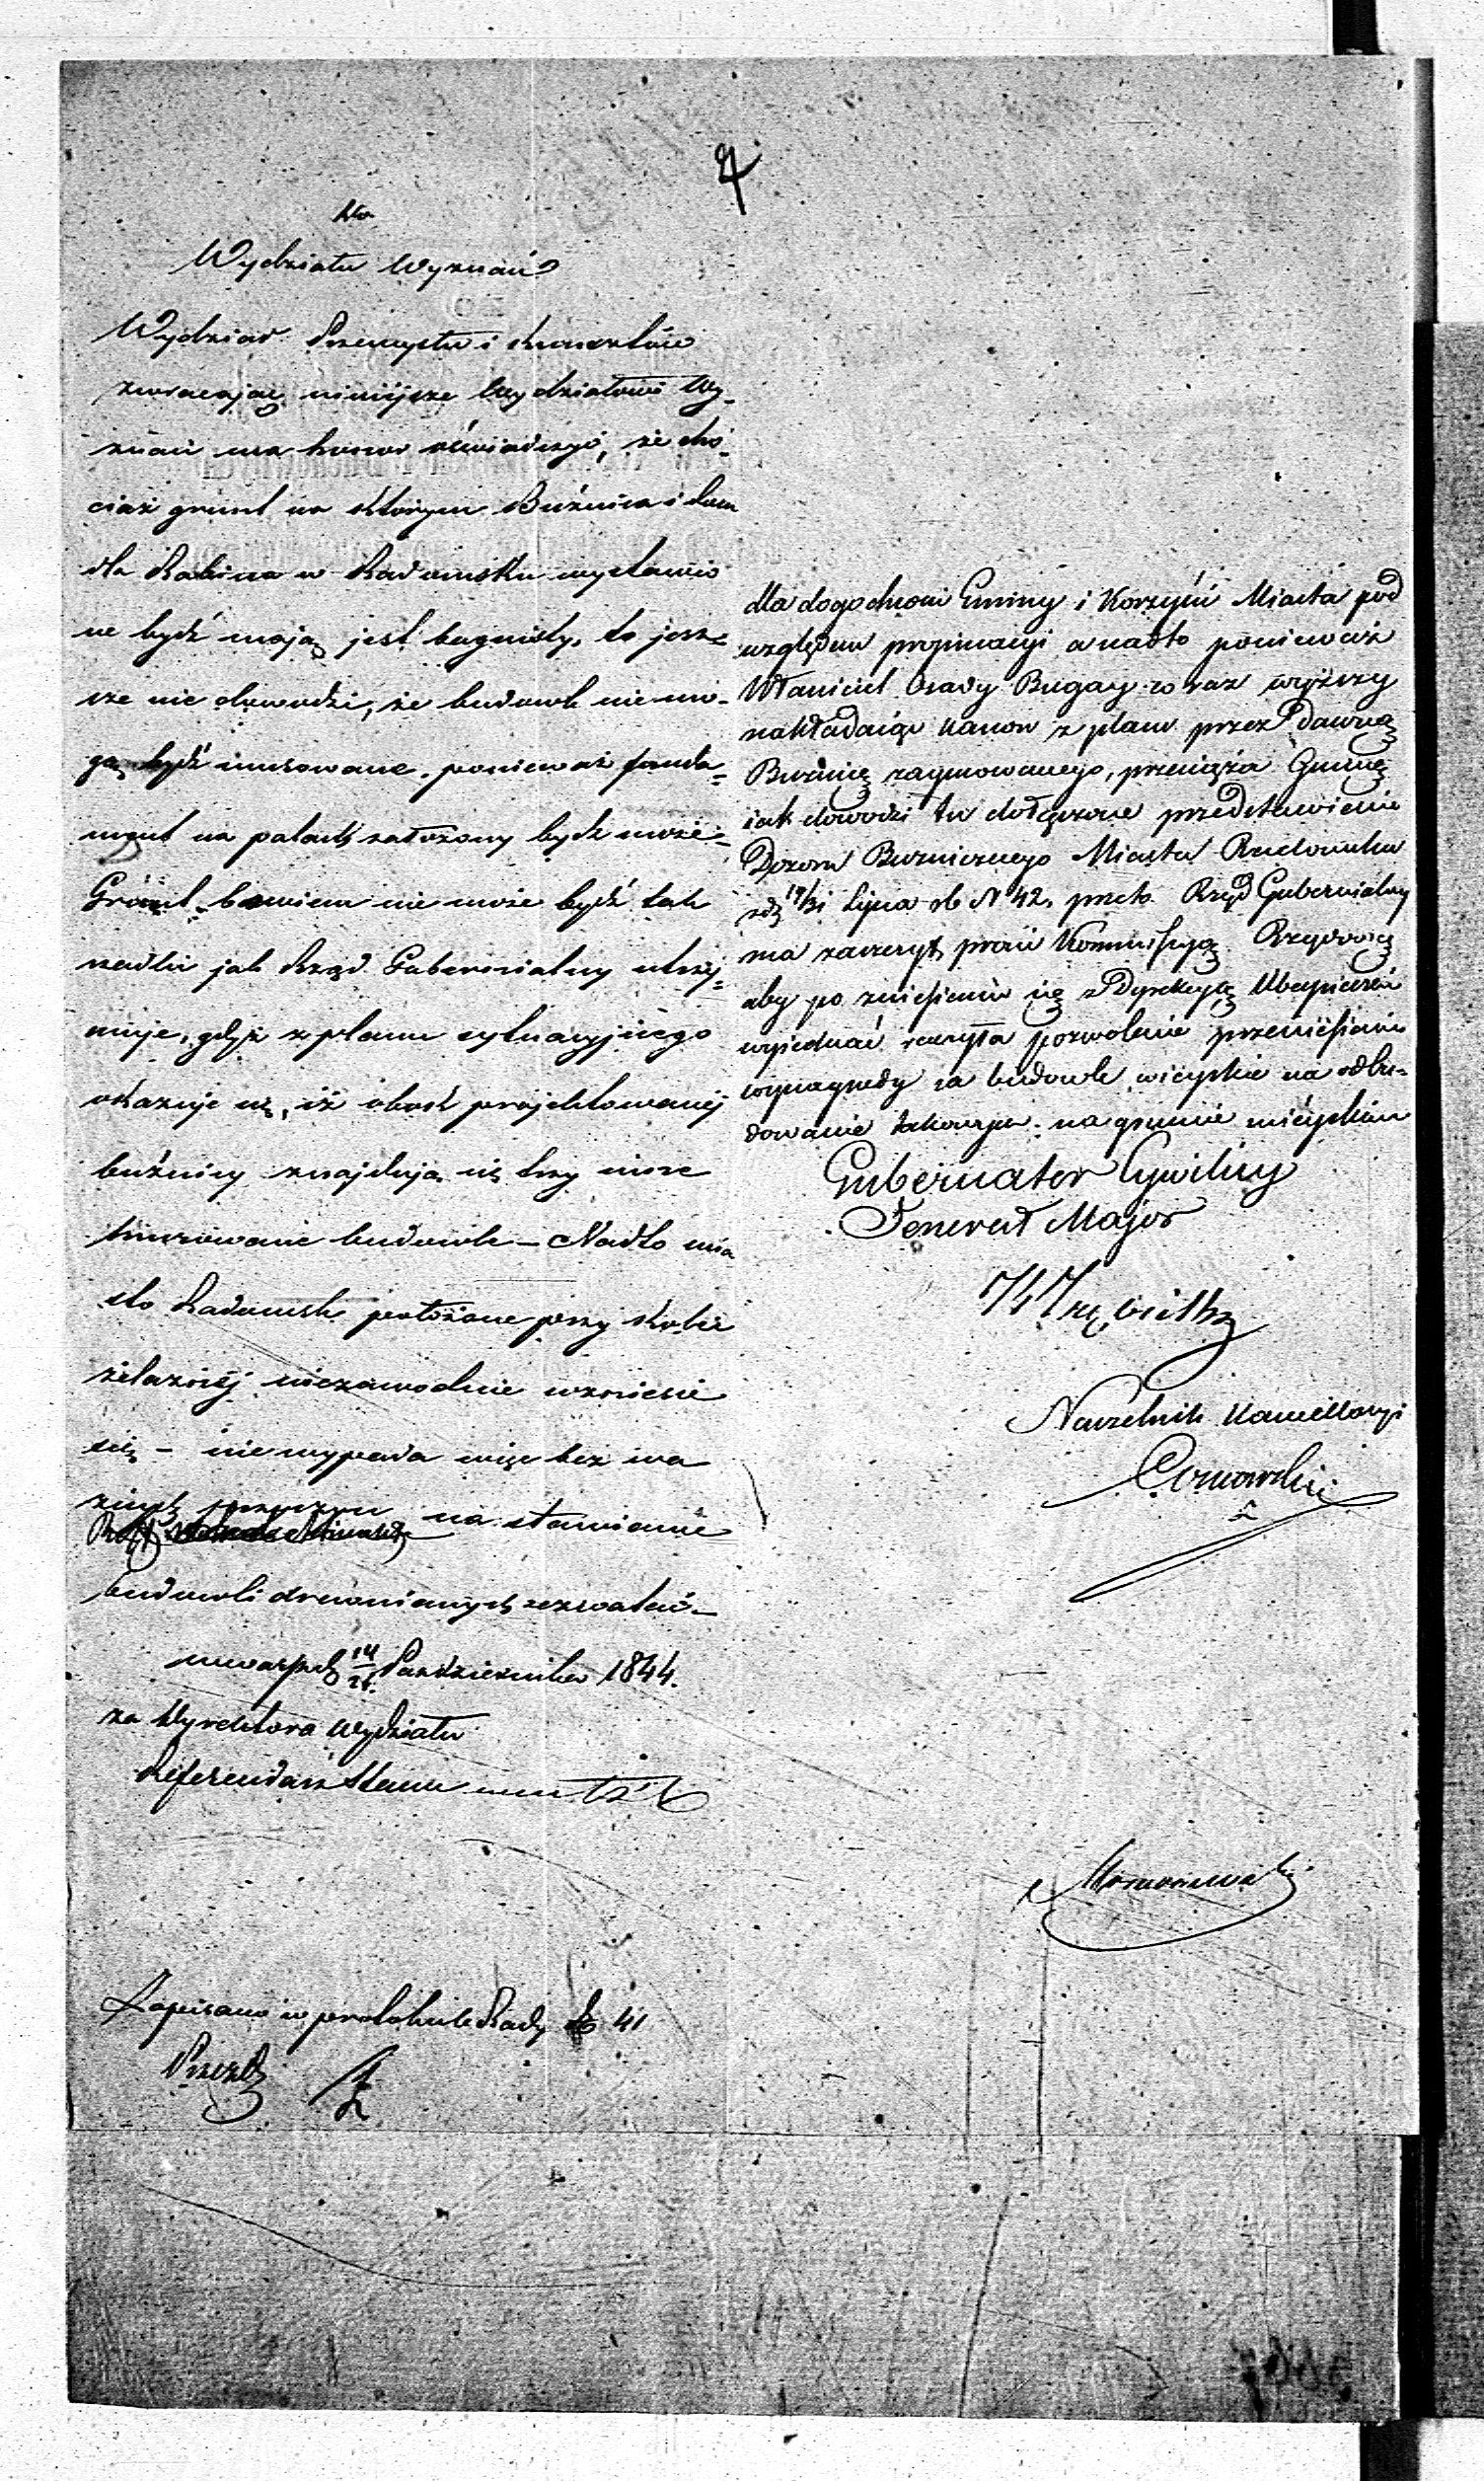 4
Do
Wydziału Wyznań
Wydział Przemysłu i Kunsztów
zwracając niniejsze Wydziałowi Wy-
znań ma honor oświadczyć, że cho-
ciaż grunt na którym Buźnica i dom
dla Rabina w Radomsku wystawio
ne bydź mają jest bagnisty, to jesz-
cze nie dowodzi, że budowle nie mo-
gą bydź murowane, ponieważ funda-
ment na palach założony bydź może-
Grunt bowiem nie może bydź tak
rzadki jak Rząd Gubernialny utrzy-
muje, gdyż z planu sytuacyjnego
okazuje się, iż obok projektowanej
buźnicy znajdują się trzy inne
murowane budowle – Nadto mia
sto Radomsk położone przy kolei
żelaznej niezawodnie wzniesie
się – nie wypada więc bez wa
żnych przyczyn na stawianie
budowli drewnianych zezwalać –
w Warszawie 14/26 Października 1844.
za Dyrektora Wydziału
Referendarz Stanu
Zapisano w protokule Rady 41
dla dogodności Gminy i Korzyści Miasta pod
względem propinacyi a nadto ponieważ
Właściciel Osady Bugay coraz wyższy
nakładaiąc kanon z placu przez dawną
Buźnicę zaymowanego, przeciąża Gminę
iak dowodzi tu dołączone przedstawienie
Dozoru Buźniczego Miasta Radomska
z d. 19/31 Lipca rb N 42, przeto Rząd Gubernialny
ma zaszczyt prosić Kommissyą Rządową
aby po zniesieniu się z Dyrekcyą Ubezpieczeń
wyiednać raczyła pozwolenie przeniesienia
wynagrody za budowle wieyskie na odbu-
dowanie takowych na gruncie mieyskim
Gubernator Cywilny
Generał Major
Naczelnik Kancellaryi